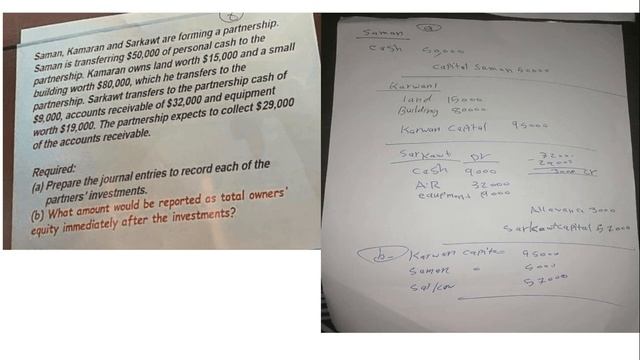 8
Saman, Kamaran and Sarkawt are forming a partnership.
Saman is transferring $50,000 of personal cash to the
partnership. Kamaran owns land worth $15,000 and a small
building worth $80,000, which he transfers to the
partnership. Sarkawt transfers to the partnership cash of
$9,000, accounts receivable of $32,000 and equipment
worth $19,000. The partnership expects to collect $29,000
of the accounts receivable.
Required:
(a) Prepare the journal entries to record each of the
partners' investments.
(b) What amount would be reported as total owners'
equity immediately after the investments?
Saman a
Cash 50000
Capital Saman 50000
Karwan
land 15000
Building 80000
Karwan Capital 95000
Sarkawt Dr
Cash 9000
A/R 32000
3000 cr
Allowance 3000
Sarkawt capital 57000
b- Karwan Capital 95000
Saman "
57000